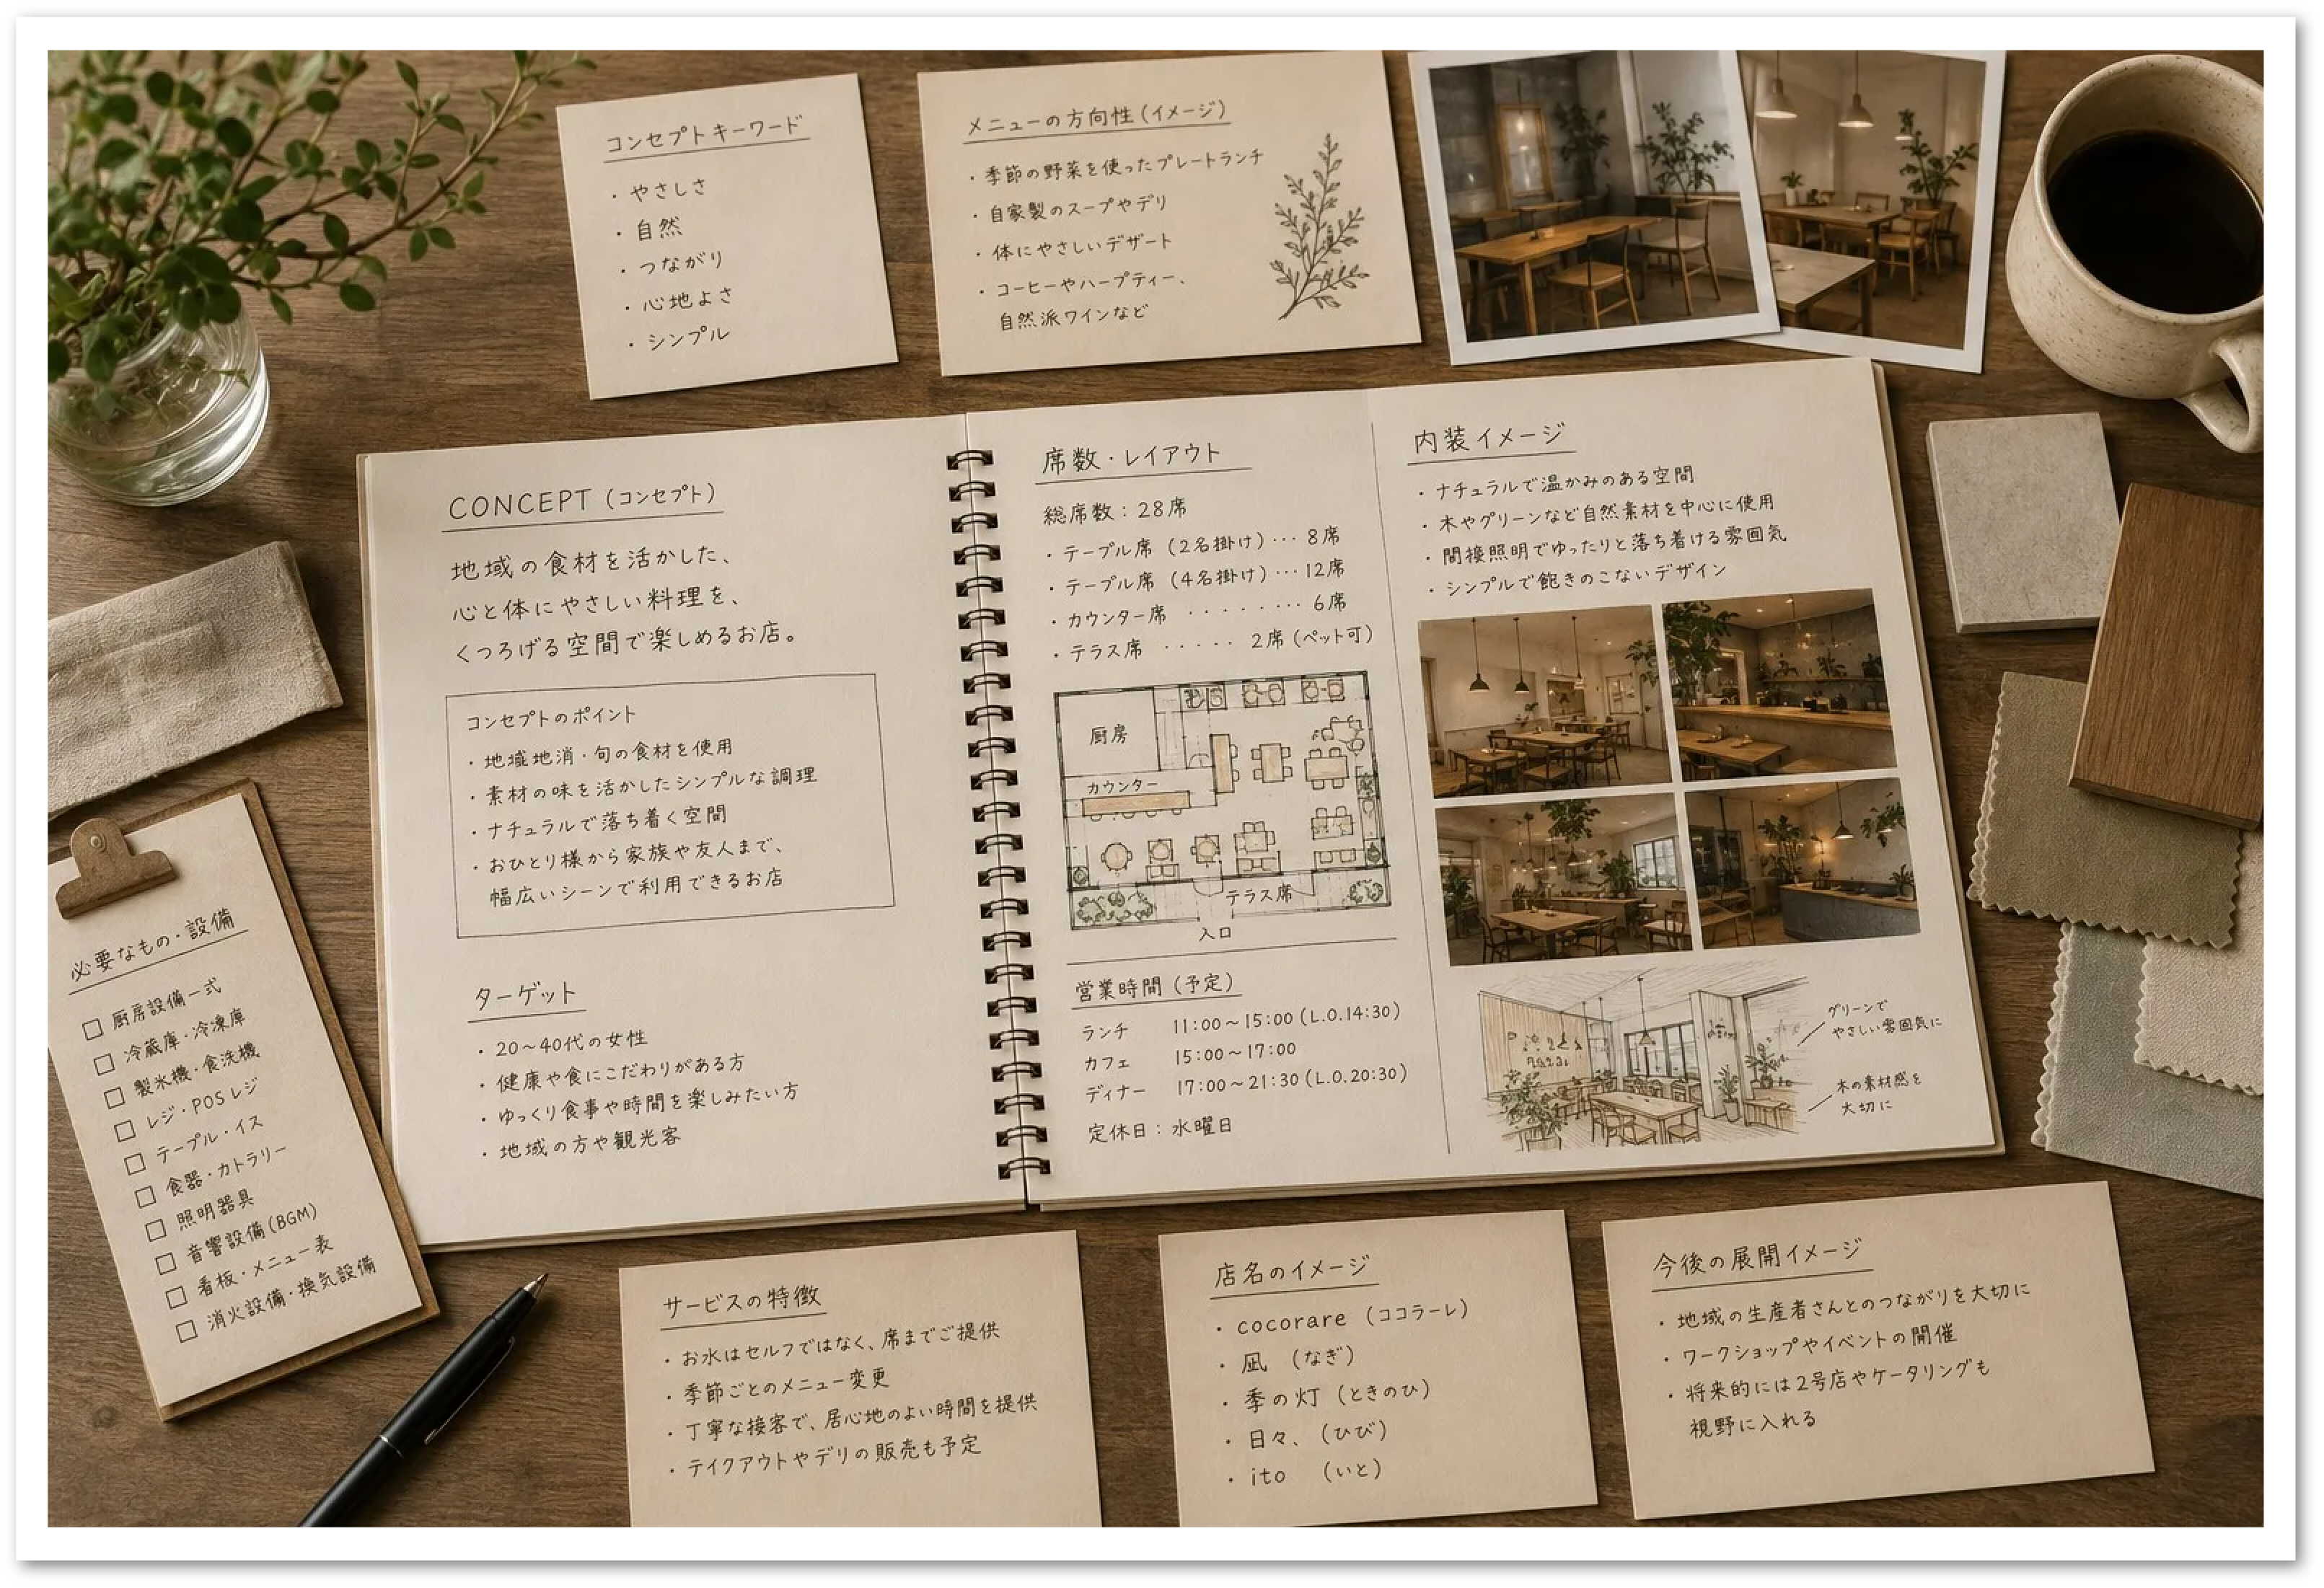 コンセプトキーワード
・やさしさ
・自然
・つながり
・心地よさ
・シンプル
メニューの方向性(イメージ)
・季節の野菜を使ったプレートランチ
・自家製のスープやデリ
・体にやさしいデザート
・コーヒーやハーブティー、
自然派ワインなど
CONCEPT (コンセプト)
地域の食材を活かした、
心と体にやさしい料理を、
くつろげる空間で楽しめるお店。
コンセプトのポイント
・地域地消・旬の食材を使用
・素材の味を活かしたシンプルな調理
・ナチュラルで落ち着く空間
・おひとり様から家族や友人まで、
幅広いシーンで利用できるお店
ターゲット
・20〜40代の女性
・健康や食にこだわりがある方
・ゆっくり食事や時間を楽しみたい方
・地域の方や観光客
席数・レイアウト
総席数:28席
・テーブル席(2名掛け)… 8席
・テーブル席(4名掛け)… 12席
・カウンター席 ········ 6席
・テラス席 ····· 2席(ペット可)
厨房
カウンター
テラス席
入口
営業時間(予定)
ランチ 11:00〜15:00 (L.O.14:30)
カフェ 15:00〜17:00
ディナー 17:00〜21:30 (L.O.20:30)
定休日:水曜日
内装イメージ
・ナチュラルで温かみのある空間
・木やグリーンなど自然素材を中心に使用
・間接照明でゆったりと落ち着ける雰囲気
・シンプルで飽きのこないデザイン
グリーンで
やさしい雰囲気に
木の素材感を
大切に
必要なもの・設備
□ 厨房設備一式
□ 冷蔵庫・冷凍庫
□ 製氷機・食洗機
□ レジ・POSレジ
□ テーブル・イス
□ 食器・カトラリー
□ 照明器具
□ 音響設備(BGM)
□ 看板・メニュー表
□ 消火設備・換気設備
サービスの特徴
・お水はセルフではなく、席までご提供
・季節ごとのメニュー変更
・丁寧な接客で、居心地のよい時間を提供
・テイクアウトやデリの販売も予定
店名のイメージ
・cocorare (ココラーレ)
・凪 (なぎ)
・季の灯 (ときのひ)
・日々、(ひび)
・ito (いと)
今後の展開イメージ
・地域の生産者さんとのつながりを大切に
・ワークショップやイベントの開催
・将来的には2号店やケータリングも
視野に入れる